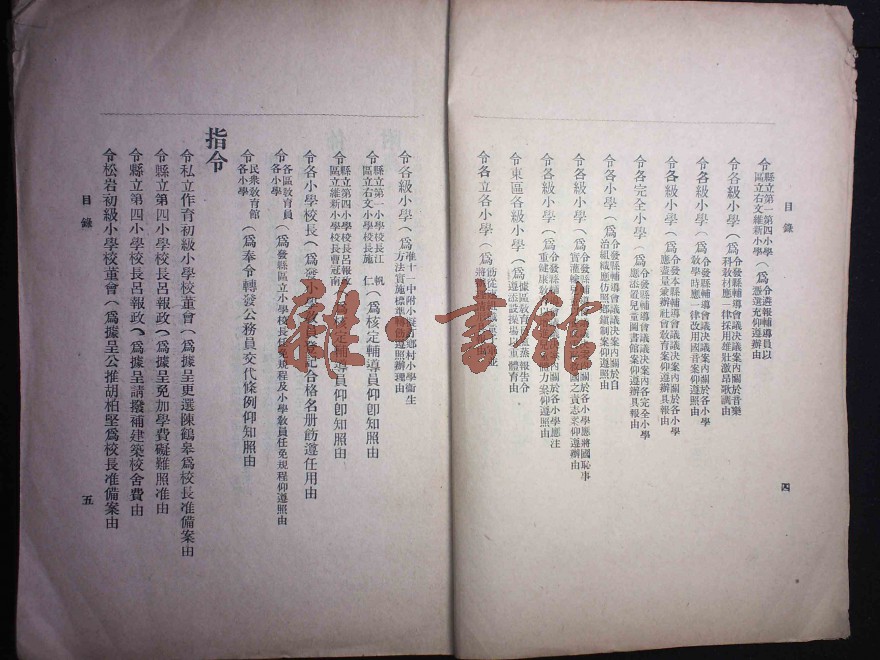 目錄
令縣立第一第四小學
區立右文維新小學(爲令遴報輔導員以
憑選充仰遵辦由
令各級小學(爲令發縣輔導會議決議案內關於音樂
科教材應一律採用雄壯激昂歌調由
令各級小學(爲令發縣輔導會議議決案內關於各小學
教學時應一律改用國音案仰遵照由
令各級小學(爲令發本縣輔導會議議決案內關於各小學
應盡量兼辦社會教育案仰遵辦具報由
令各完全小學(爲令發縣輔導會議議決案內各完全小學
應添設兒童圖書館案仰遵辦具報由
令各小學(爲令發縣輔導會議議決案內關於自
治組織應仿照鄉鎮制案仰遵照由
令各級小學(爲令發縣輔導會議
內關於各小學應將國恥事
之責志案仰遵辦由
令各級小學(爲令發縣
案內關於各小學應注
重健康教
仰遵照由
令東區各級小學(爲據區教育
蒸報告令
遵設操場以重體育由
令各立各小學(爲
四
令各級小學(爲准十一中附小
鄉村小學衞生
方法實施標準轉飭遵照辦理由
令縣立第一小學校長江帆
區立右文小學校長施仁(爲核定輔導員仰卽知照由
令縣立第四小學校長呂報政
區立維新小學校長曹冠南(爲核定輔導員仰卽知照由
令各小學校長(爲發小學教員登記合格名册飭遵任用由
令各區教育員
各小學(爲發縣區立小學校長任免規程及小學教員任免規程仰遵照由
令民衆教育館
各小學(爲奉令轉發公務員交代條例仰知照由
指令
令私立作育初級小學校董會(爲據呈更選陳鶴皋爲校長准備案由
令縣立第四小學校長呂報政(爲據呈免加學費礙難照准由
令縣立第四小學校長呂報政(爲據呈請撥補建築校舍費由
令松岩初級小學校董會(爲據呈公推胡柏堅爲校長准備案由
目錄
五
雜·書館